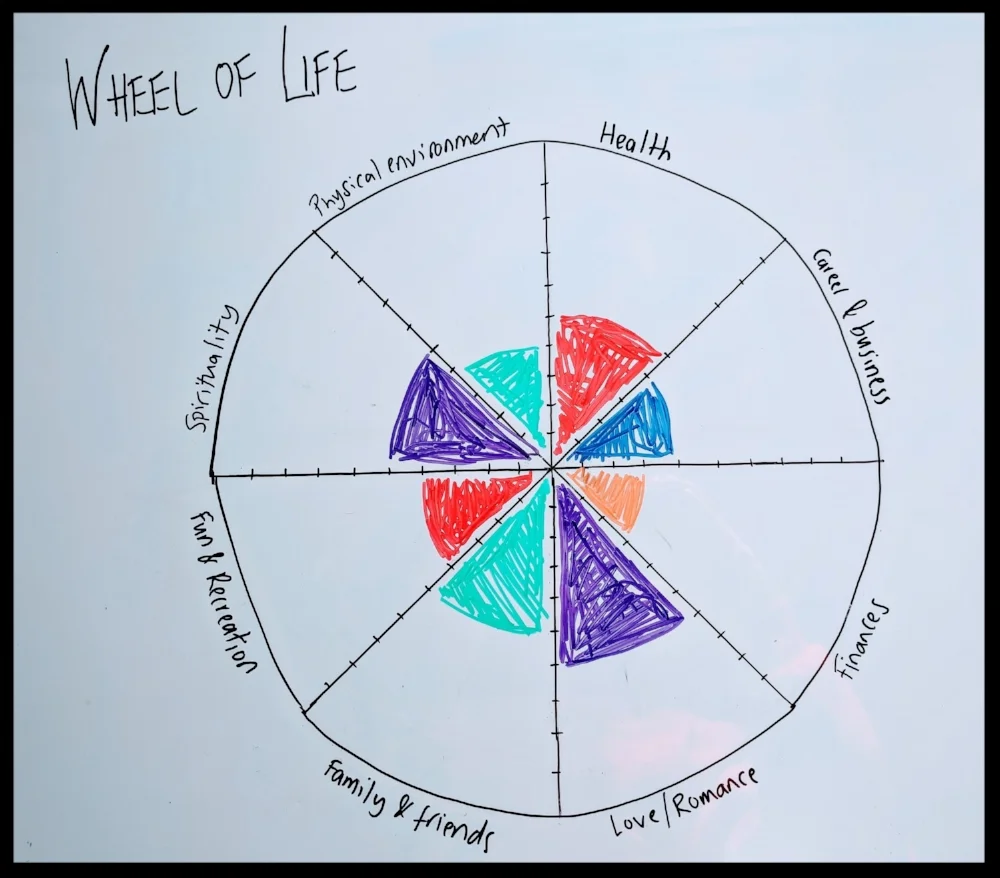 WHEEL OF LIFE
Physical environment
Health
Career & business
Spirituality
Fun & Recreation
Finances
Family & friends
Love/Romance